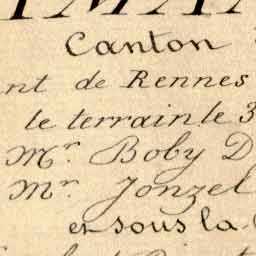 Canton
nt de Rennes
le terrain le 3
Mr. Boby D
Mr. Jonzel
en sous la